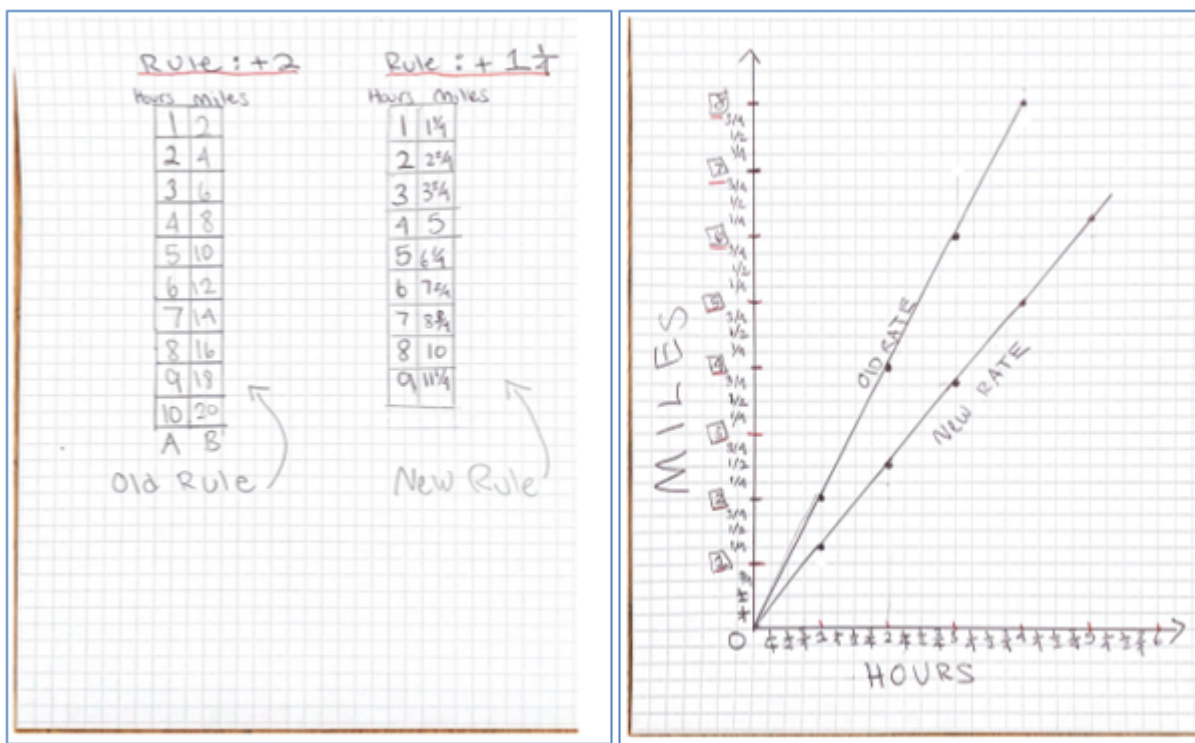 Rule : +2
Hours Miles
1 2
2 4
3 6
4 8
5 10
6 12
7 14
8 16
9 18
10 20
A B
Old Rule
Rule : + 1 1/4
Hours Miles
1 1 1/4
2 2 2/4
3 3 3/4
4 5
5 6 1/4
6 7 2/4
7
8 10
9 11 1/4
New Rule
MILES
8
3/4
1/2
1/4
7
3/4
1/2
1/4
6
3/4
1/2
1/4
5
3/4
1/2
1/4
4
3/4
1/2
1/4
3
3/4
1/2
1/4
2
3/4
1/2
1/4
1
OLD RATE
NEW RATE
0 1/4 2/4 3/4 1 1/4 1/2 3/4 2 1/4 1/2 3/4 3 1/4 1/2 3/4 4 1/4 1/2 3/4 5 1/4 1/2 3/4 6
HOURS